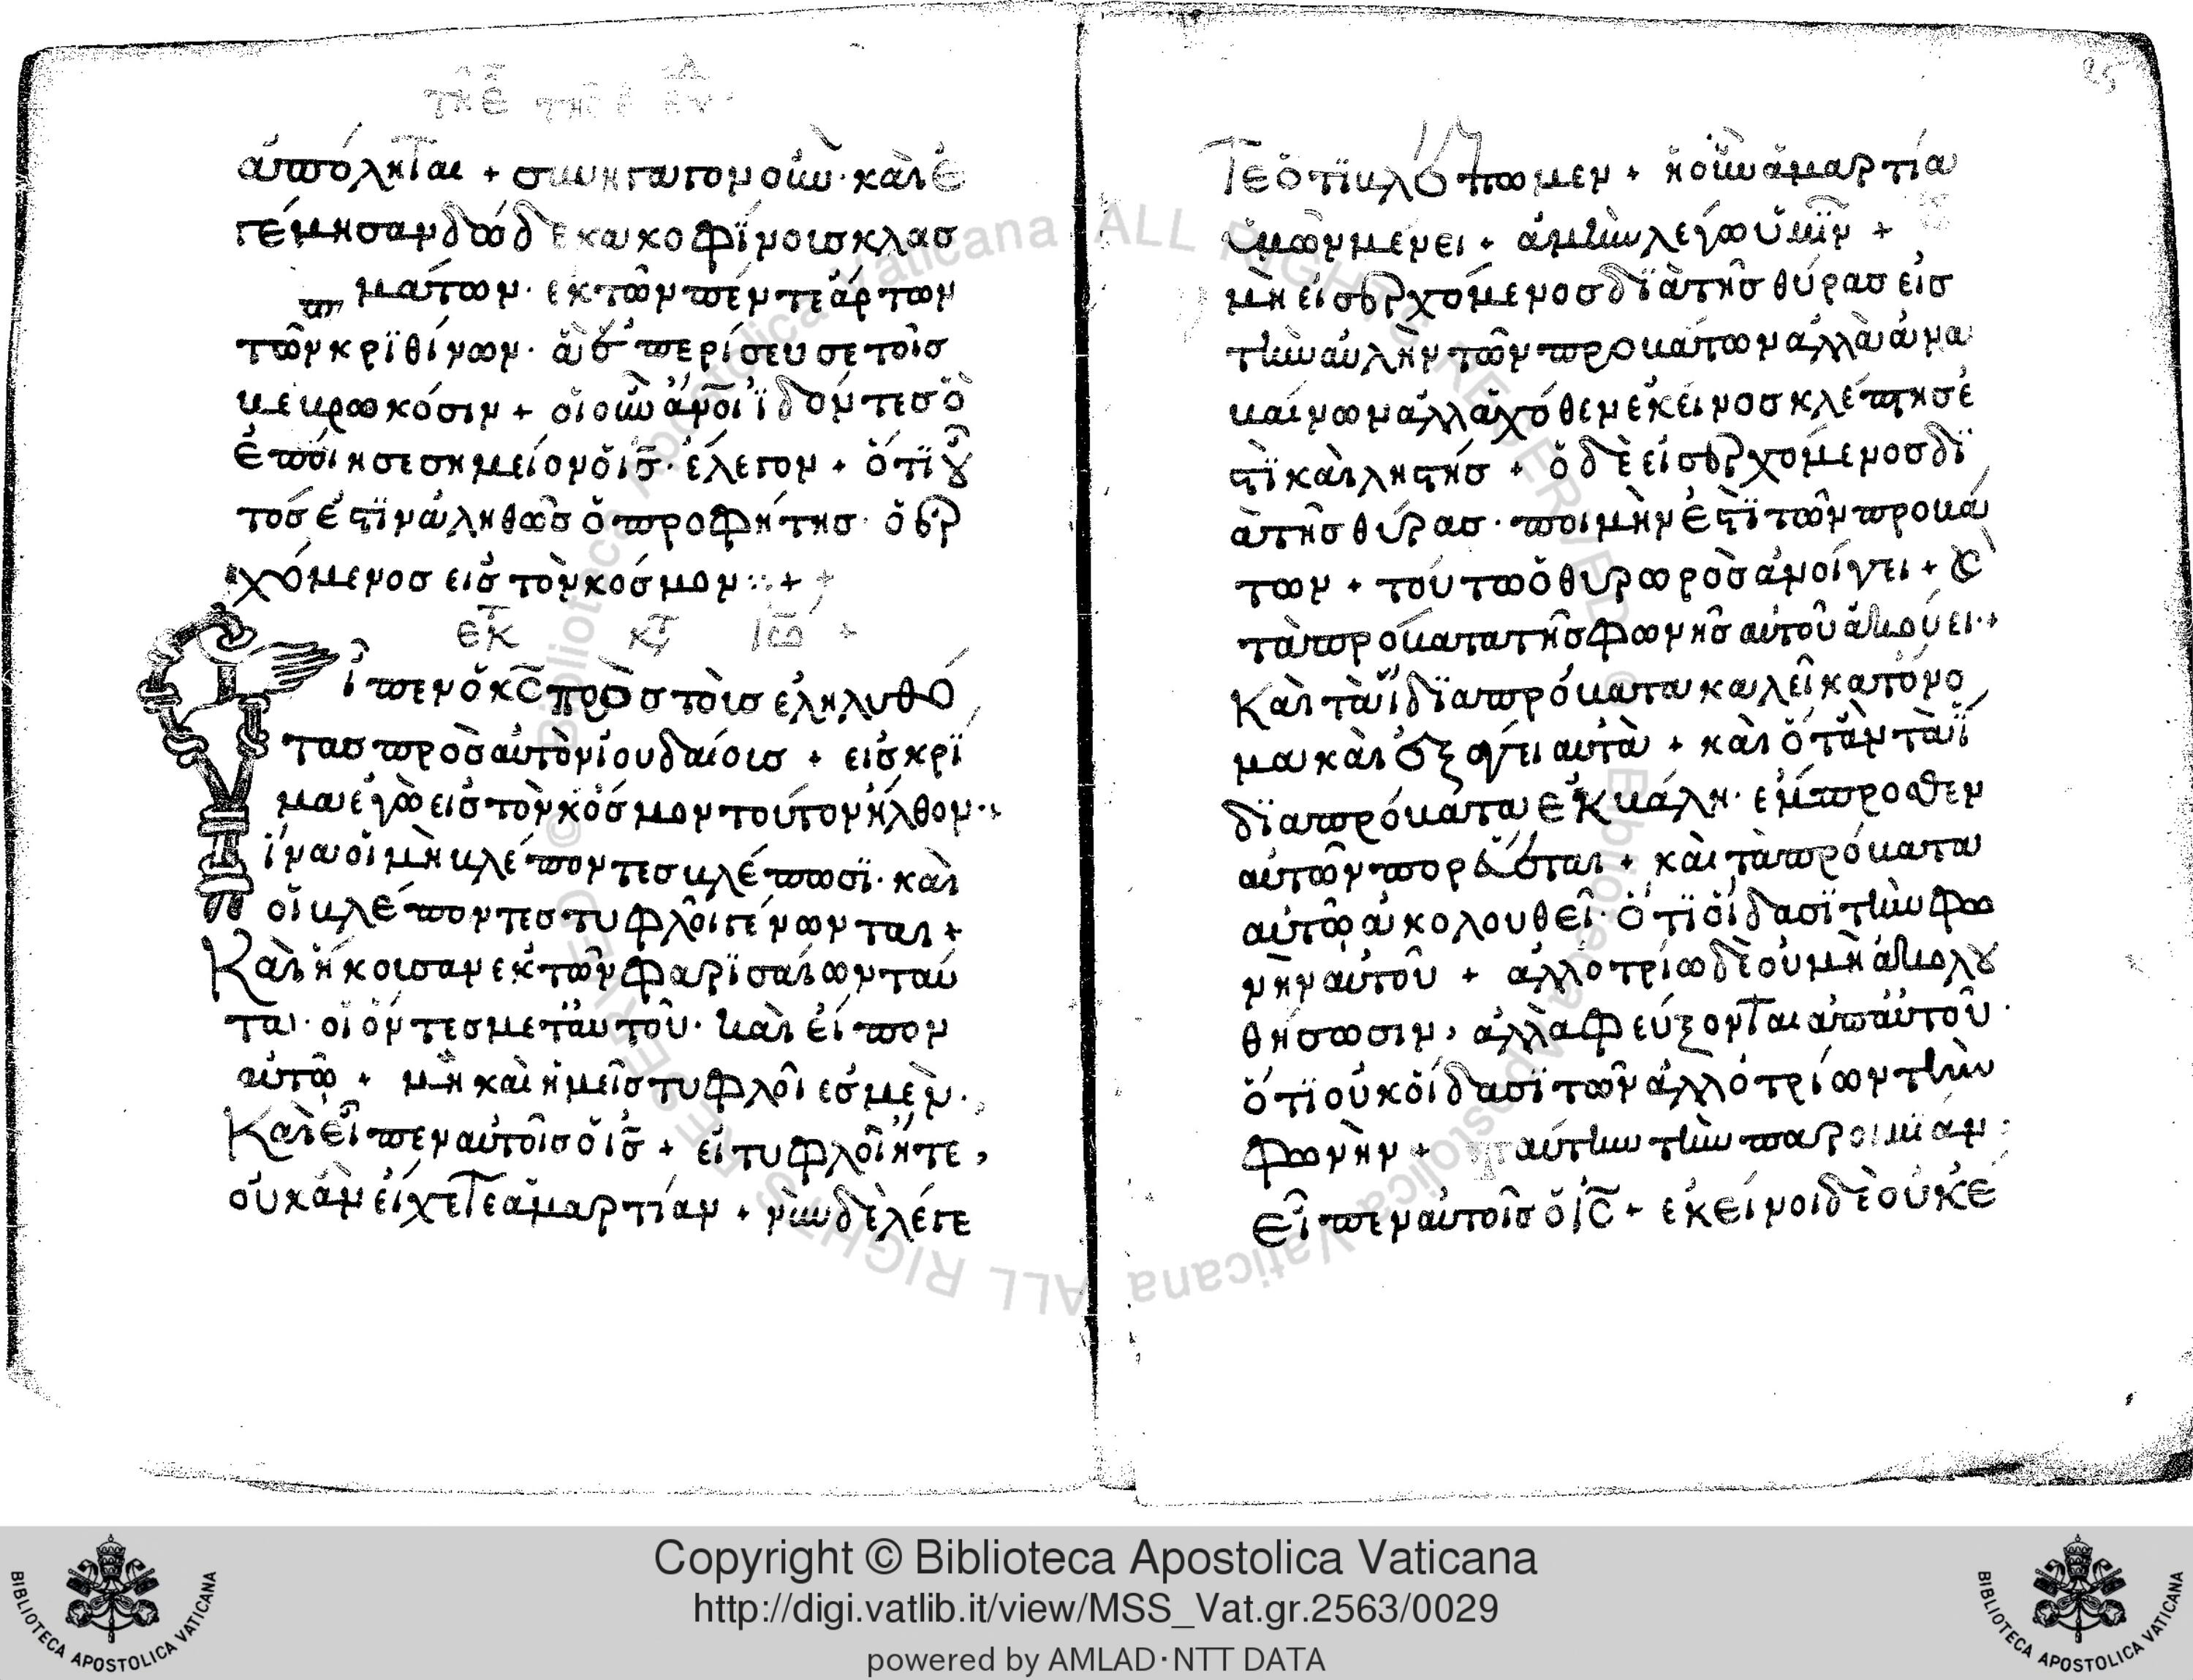 ἀπόληται + συνήγαγον οὖν · καὶ ἐ
γέμησαν δώδεκα κοφΐνοις κλασ
μάτων · ἐκ τῶν πέντε ἄρτων
τῶν κρϊθίνων · ἃ ἐπερίσευσε τοῖσ
βεβρωκόσιν + οἱ οὖν ἄνοι ϊδόντεσ ὃ
ἐποίησε σημεῖον ὁ ισ · ἔλεγον + ὅτϊ οὗ
τοσ ἐστϊν ἀληθῶσ ὁ προφήτησ · ὁ ἐρ
χόμενοσ εισ τὸν κόσμον : +
Εἶπεν ὁ κσ πρὸσ τοὺσ ἐληλυθό
τασ πρὸσ αὐτὸν ἰουδαίουσ + εισ κρῖ
μα ἐγὼ εισ τὸν κόσμον τοῦτον ἦλθον ·
ἵνα οἱ μὴ βλέποντεσ βλέπωσϊ · καὶ
οἱ βλέποντεσ τυφλοὶ γένωνται +
Καὶ ἤκουσαν ἐκ τῶν φαρϊσαίων ταῦ
τα · οἱ ὄντεσ μετ αὐτοῦ · καὶ εἶπον
αὐτῷ + μὴ καὶ ἡμεῖσ τυφλοί ἐσμεν ·
Καὶ εἶπεν αὐτοῖσ ὁ ισ + εἰ τυφλοὶ ἦτε ,
οὐκ ἂν εἴχετε ἁμαρτίαν + νῦν δὲ λέγε
25
τε ὅτϊ βλέπωμεν + ἡ οὖν ἁμαρτία
ὑμῶν μένει + ἀμὴν λέγω ὑμῖν +
μὴ εἰσερχόμενοσ δϊὰ τῆσ θύρασ εἰσ
τὴν αὐλὴν τῶν προβάτων ἀλλὰ ἀνα
βαίνων ἀλλαχόθεν ἐκεῖνοσ κλέπτησ ἐ
στϊ καὶ ληστήσ + ὁ δὲ εἰσερχόμενοσ δϊ
ὰ τῆσ θύρασ · ποιμὴν ἐστϊ τῶν προβά
των + τούτω ὁ θυρωρὸσ ἀνοίγει + καὶ
τὰ πρόβατα τῆσ φωνῆσ αὐτοῦ ἀκούει · +
Καὶ τὰ ϊδϊα πρόβατα καλεῖ κατ όνο
μα καὶ ἐξάγει αὐτὰ + καὶ ὅταν τὰ ϊ
δϊα πρόβατα ἐκβάλη · ἔμπροσθεν
αὐτῶν πορεύεται + καὶ τὰ πρόβατα
αὐτῶ ἀκολουθεῖ · ὅτϊ οἴδασϊ τὴν φω
νὴν αὐτοῦ + ἀλλοτρίω δὲ οὐ μὴ ἀκολου
θήσωσιν , ἀλλὰ φεύξονται ἀπ αὐτοῦ ·
ὅτϊ οὐκ οἴδασϊ τῶν ἀλλοτρίων τὴν
φωνὴν + ταύτην τὴν παροιμίαν
εἶπεν αὐτοῖσ ὁ ισ + ἐκεῖνοι δὲ οὐκ ἔ
Biblioteca Apostolica Vaticana ALL RIGHTS RESERVED ©
Copyright © Biblioteca Apostolica Vaticana
http://digi.vatlib.it/view/MSS_Vat.gr.2563/0029
powered by AMLAD·NTT DATA
BIBLIOTECA APOSTOLICA VATICANA
BIBLIOTECA APOSTOLICA VATICANA